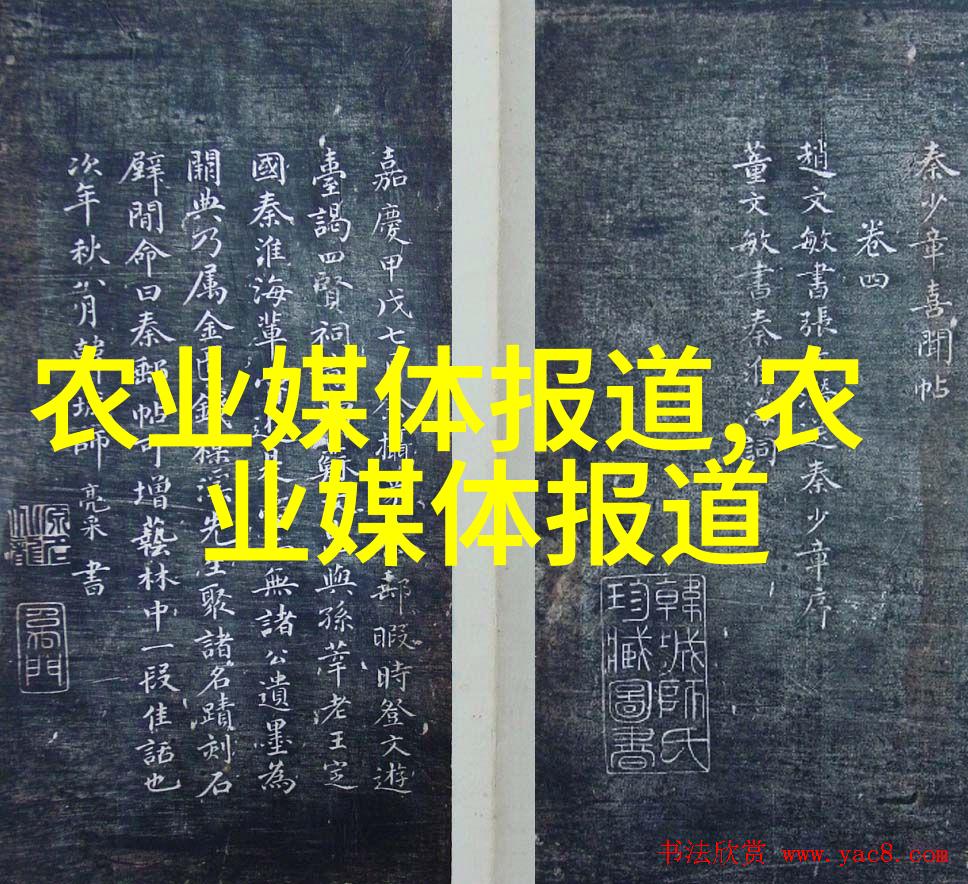 农业媒体报道,农
业媒体报道
秦少章喜聞帖
卷四
趙文敏書張秦少章序
董文敏書秦淮海詞
韓城師氏
珍臧圖書
嘉慶甲戊七郵暇時登文遊
臺謁四賢祠與孫莘老王定
國秦淮海輩無諸公遺墨為
闕典乃属金先生聚諸名蹟刻石
壁間命曰秦郵帖可增藝林中一段佳話也
次年秋八月韓城師亮采書
书法欣赏 www.yac8.com